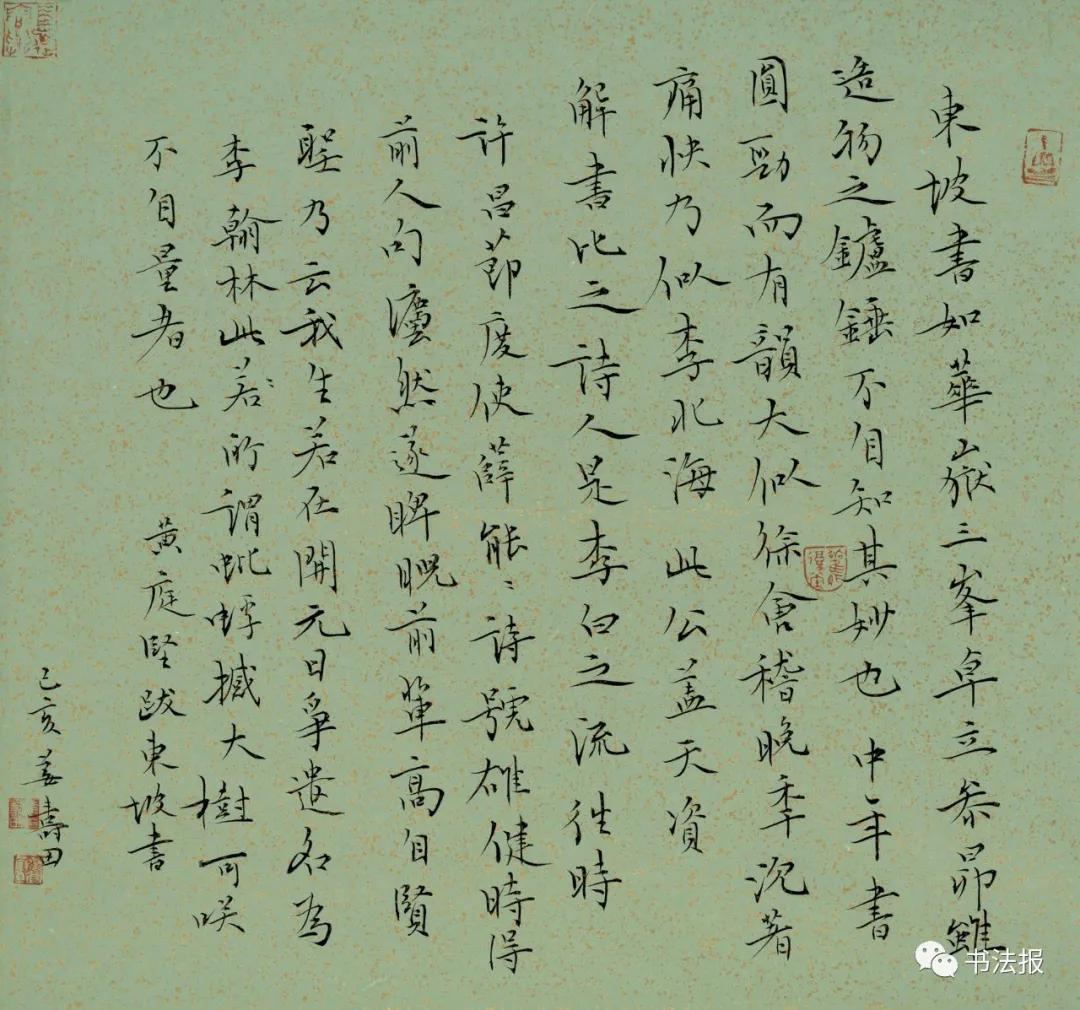 東坡書如華嶽三峯卓立參昴雖
造物之鑪錘不自知其妙也中年書
圓勁而有韻大似徐會稽晚年沉著
痛快乃似李北海此公蓋天資
解書比之詩人是李白之流往時
許昌節度使薛能能詩號雄健時得
前人句法然遂睥睨前輩高自賢
聖乃云我生若在開元日爭遣名為
李翰林此若若所謂蚍蜉撼大樹可咲
不自量者也
黃庭堅跋東坡書
己亥姜壽田
书法报